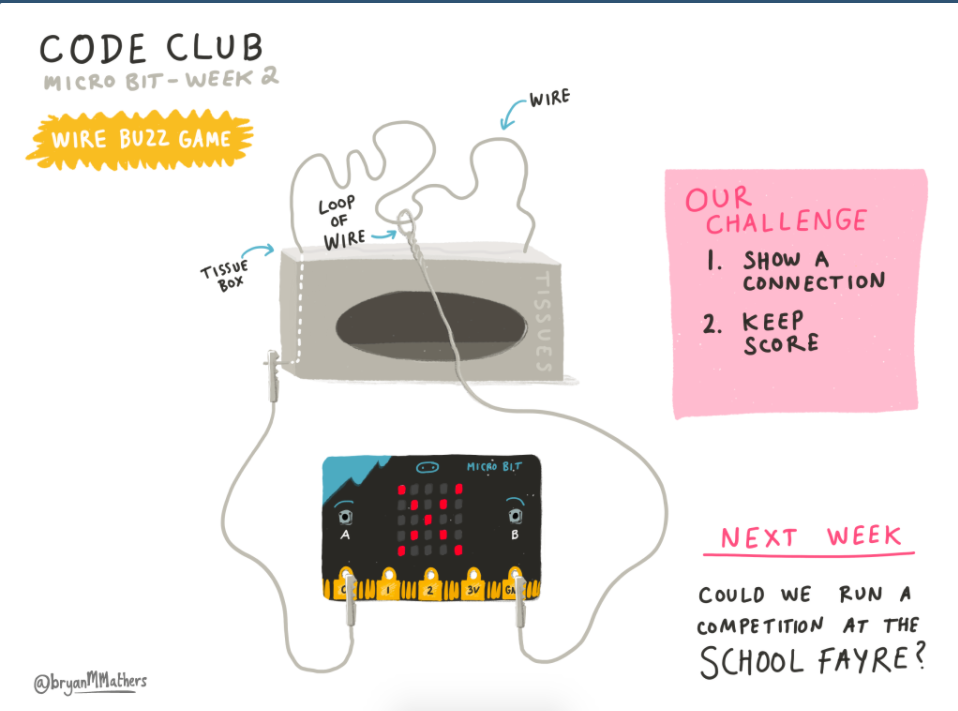 CODE CLUB
MICRO BIT - WEEK 2
WIRE BUZZ GAME
WIRE
LOOP
OF
WIRE
TISSUE
BOX
TISSUES
OUR
CHALLENGE
1. SHOW A
CONNECTION
2. KEEP
SCORE
MICRO BIT
A
B
0
1
2
3V
NEXT WEEK
COULD WE RUN A
COMPETITION AT THE
SCHOOL FAYRE?
@bryanMMathers